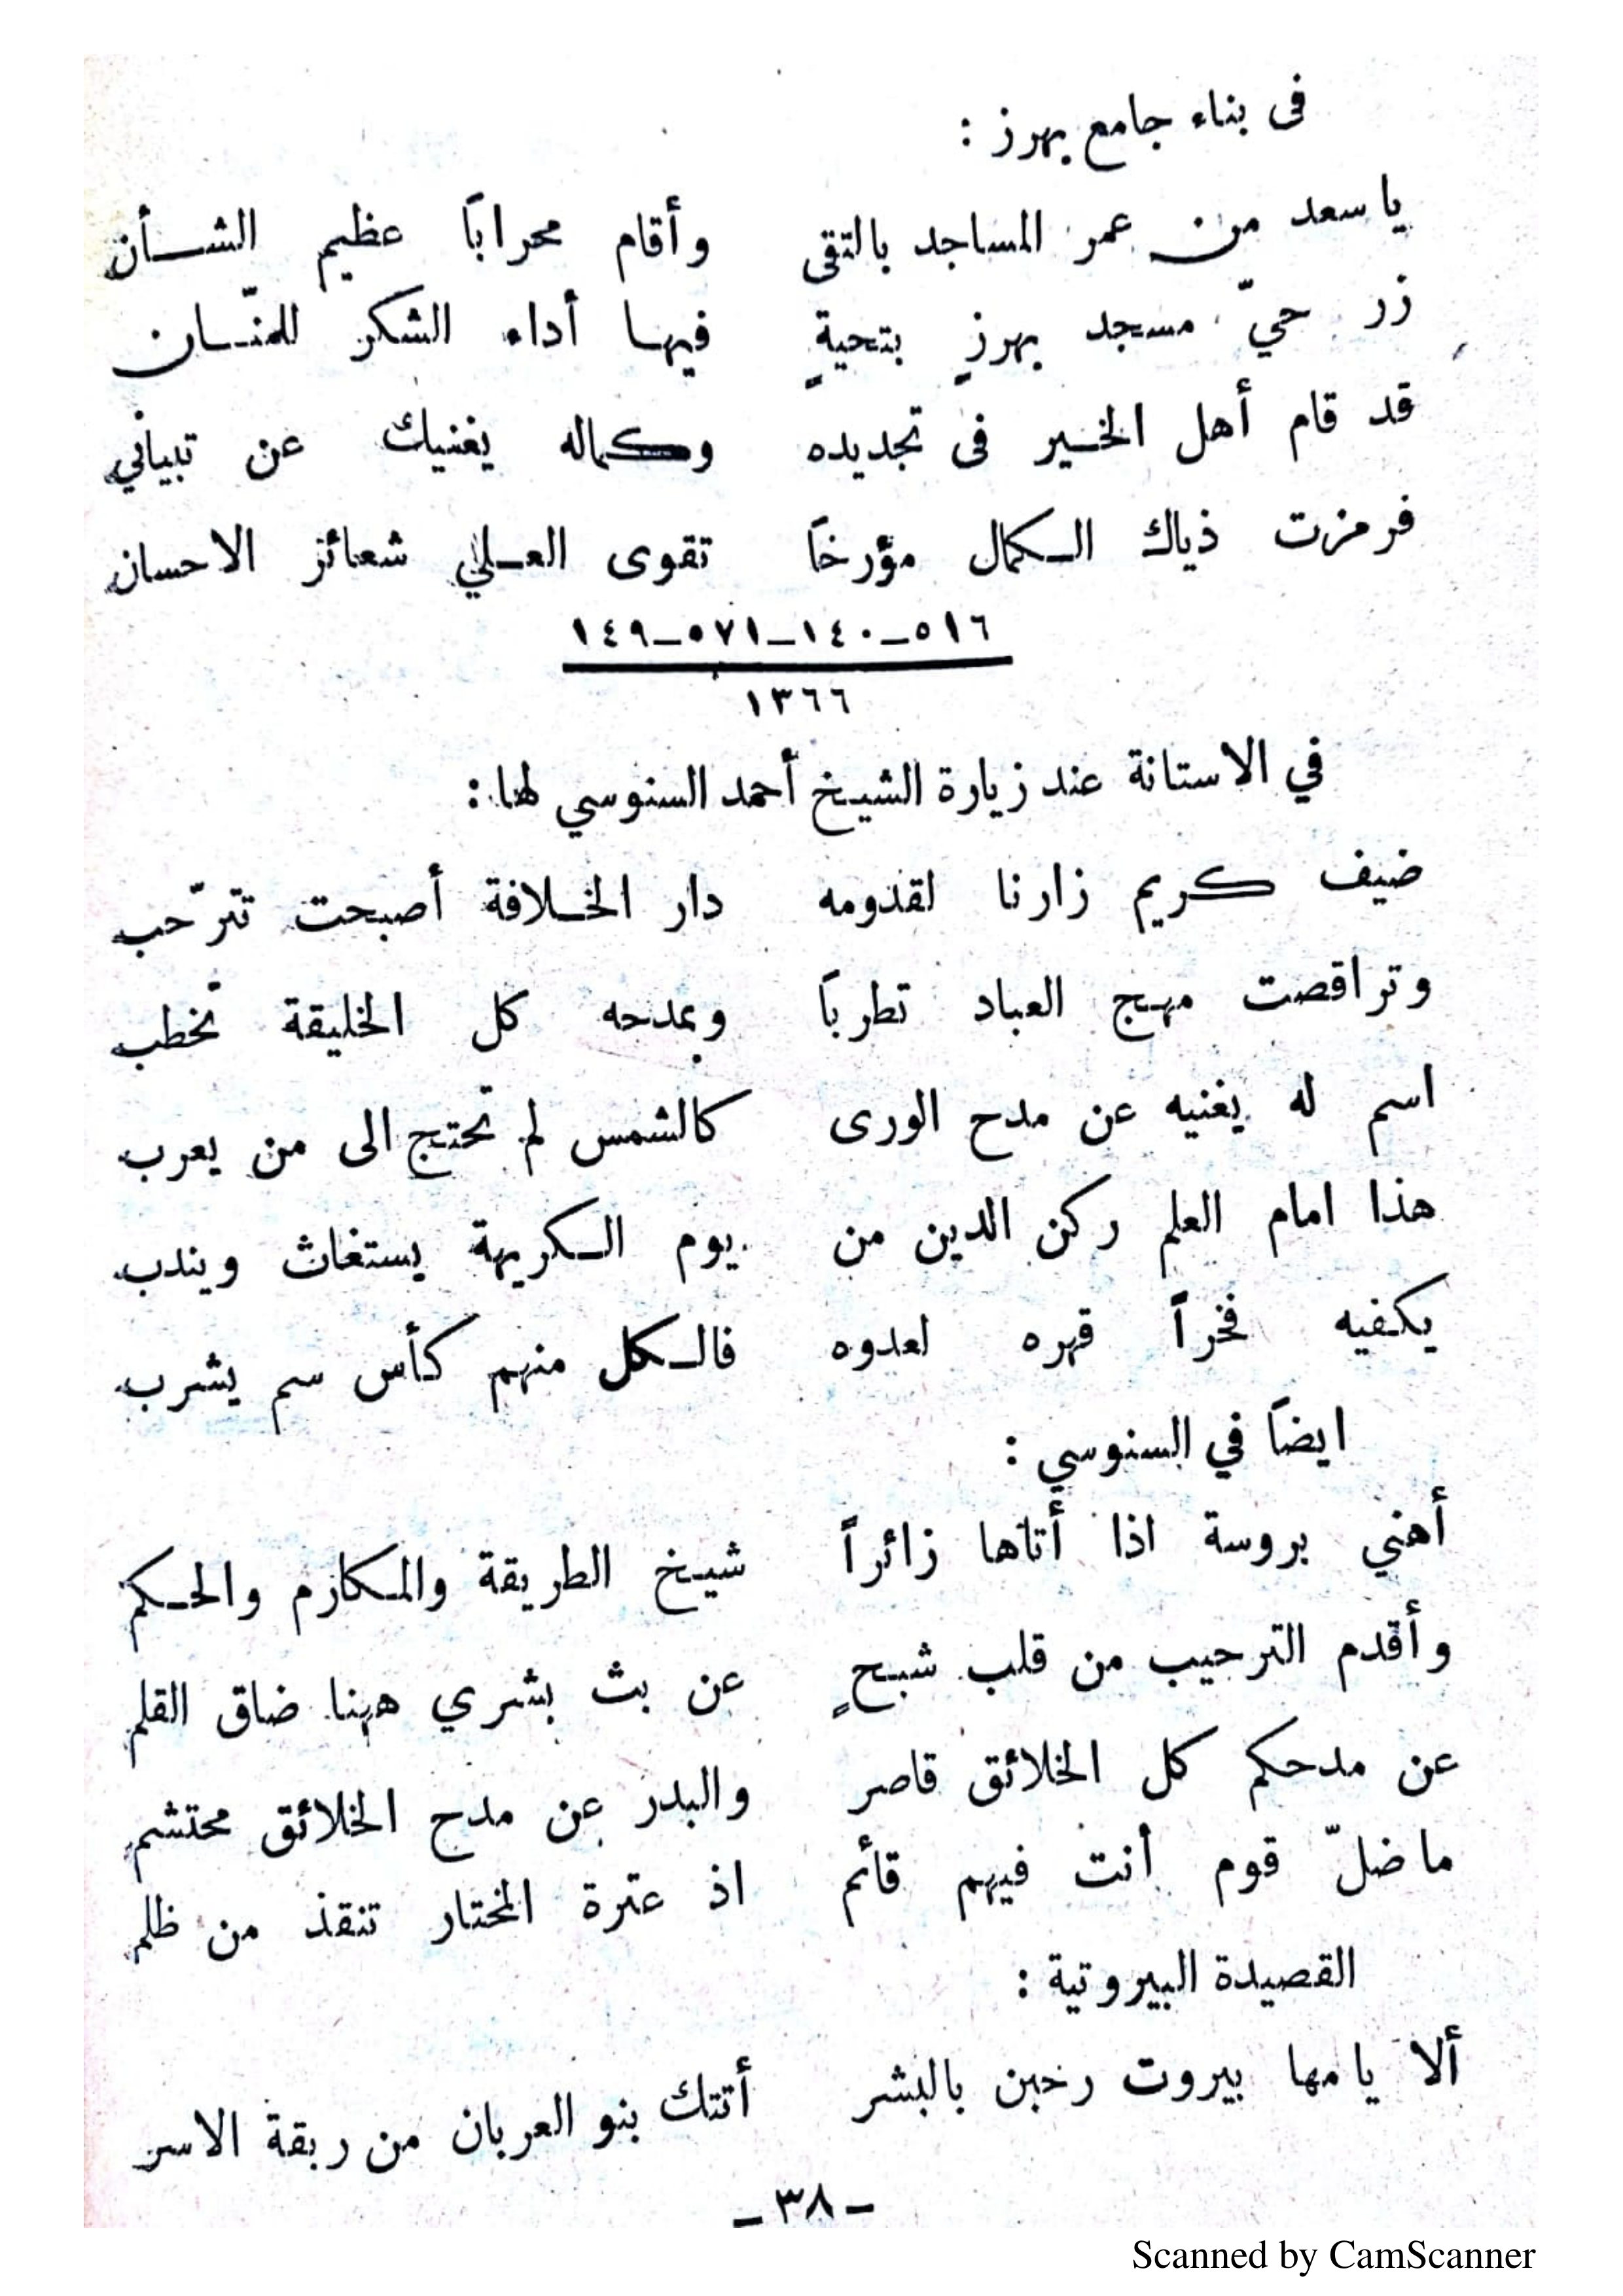 فى بناء جامع بهرز :
يا سعد من عمر المساجد بالتقى وأقام محراباً عظيم الشأن
زر حيّ مسجد بهرزٍ بتحيةٍ فيها أداء الشكر للمنّان
قد قام أهل الخير فى تجديده وكماله يغنيك عن تبياني
فرمزت ذياك الكمال مؤرخاً تقوى العلي شعائر الاحسان
٥١٦_١٤٠_٥٧١_١٤٩
١٣٦٦
في الاستانة عند زيارة الشيخ أحمد السنوسي لها :
ضيف كريم زارنا لقدومه دار الخلافة أصبحت تترّحب
وتراقصت مهج العباد تطرباً وبمدحه كل الخليقة تخطب
اسم له يغنيه عن مدح الورى كالشمس لم تحتج الى من يعرب
هذا امام العلم ركن الدين من يوم الكريهة يستغاث ويندب
يكفيه فخراً قهره لعدوه فالكل منهم كأس سم يشرب
ايضاً في السنوسي :
أهني بروسة اذا أتاها زائراً شيخ الطريقة والمكارم والحكم
وأقدم الترحيب من قلب شبحٍ عن بث بشري ههنا ضاق القلم
عن مدحكم كل الخلائق قاصر والبدر عن مدح الخلائق محتشم
ما ضلّ قوم أنت فيهم قائم اذ عترة المختار تنقذ من ظلم
القصيدة البيروتية :
ألا يا مها بيروت رحبن بالبشر أتتك بنو العربان من ربقة الاسر
_ ٣٨ _
Scanned by CamScanner